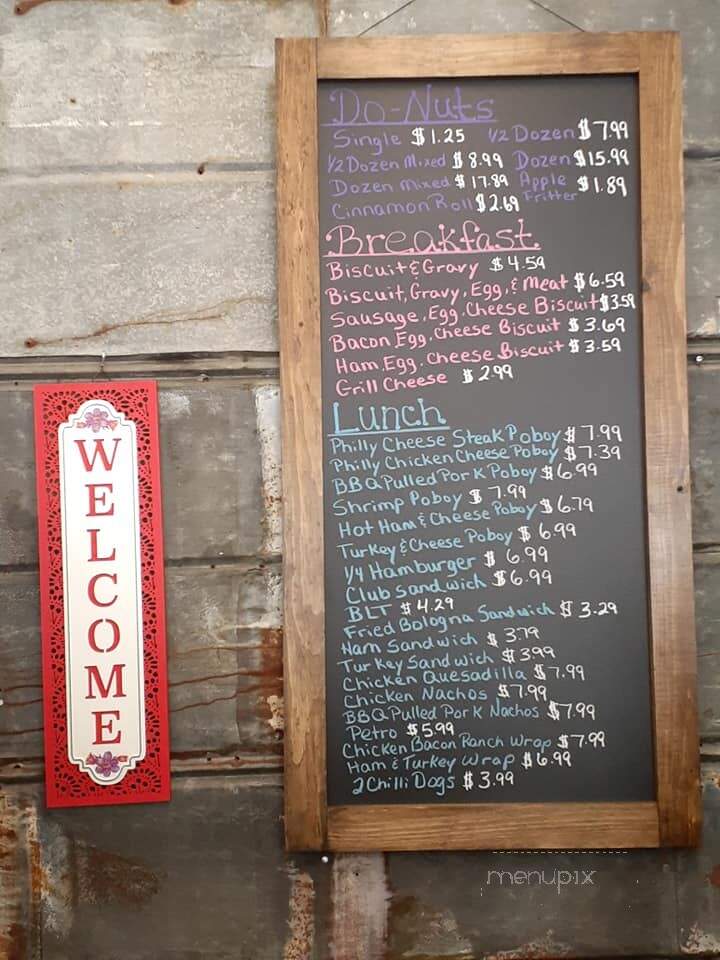 WELCOME
Do-Nuts
Single $1.25 1/2 Dozen $7.99
1/2 Dozen Mixed $8.99 Dozen $15.99
Dozen Mixed $17.89 Apple Fritter $1.89
Cinnamon Roll $2.69
Breakfast
Biscuit & Gravy $4.59
Biscuit, Gravy, Egg, & Meat $6.59
Sausage, Egg, Cheese Biscuit $3.59
Bacon, Egg, Cheese Biscuit $3.69
Ham, Egg, Cheese Biscuit $3.59
Grill Cheese $2.99
Lunch
Philly Cheese Steak Poboy $7.99
Philly Chicken Cheese Poboy $7.39
BBQ Pulled Pork Poboy $6.99
Shrimp Poboy $7.99
Hot Ham & Cheese Poboy $6.79
Turkey & Cheese Poboy $6.99
1/4 Hamburger $6.99
Club Sandwich $6.99
BLT $4.29
Fried Bologna Sandwich $3.29
Ham Sandwich $3.79
Turkey Sandwich $3.99
Chicken Quesadilla $7.99
Chicken Nachos $7.99
BBQ Pulled Pork Nachos $7.99
Petro $5.99
Chicken Bacon Ranch Wrap $7.99
Ham & Turkey Wrap $6.99
2 Chilli Dogs $3.99
menupix